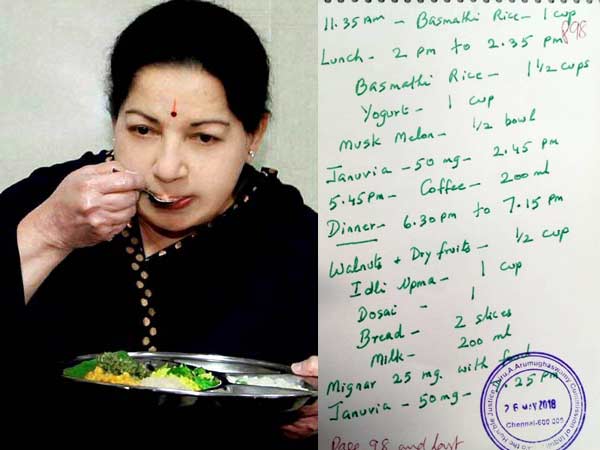 11.35 Am - Basmathi Rice - 1 cup
898
Lunch - 2 pm to 2.35 pm
Basmathi Rice - 1 1/2 cups
Yogurt - 1 cup
Musk Melon - 1/2 bowl
Januvia - 50 mg - 2.45 pm
5.45 pm - Coffee - 200 ml
Dinner - 6.30 pm to 7.15 pm
Walnuts + Dry fruits - 1/2 cup
Idli Upma - 1 cup
Dosai - 1
Bread - 2 slices
Milk - 200 ml
Mignar 25 mg. with food
Januvia - 50 mg - 7.25 pm
Page 98 and last
Justice Thiru.A.Arumughaswamy Commission of Inquiry
26 MAY 2018
Chennai-600 005